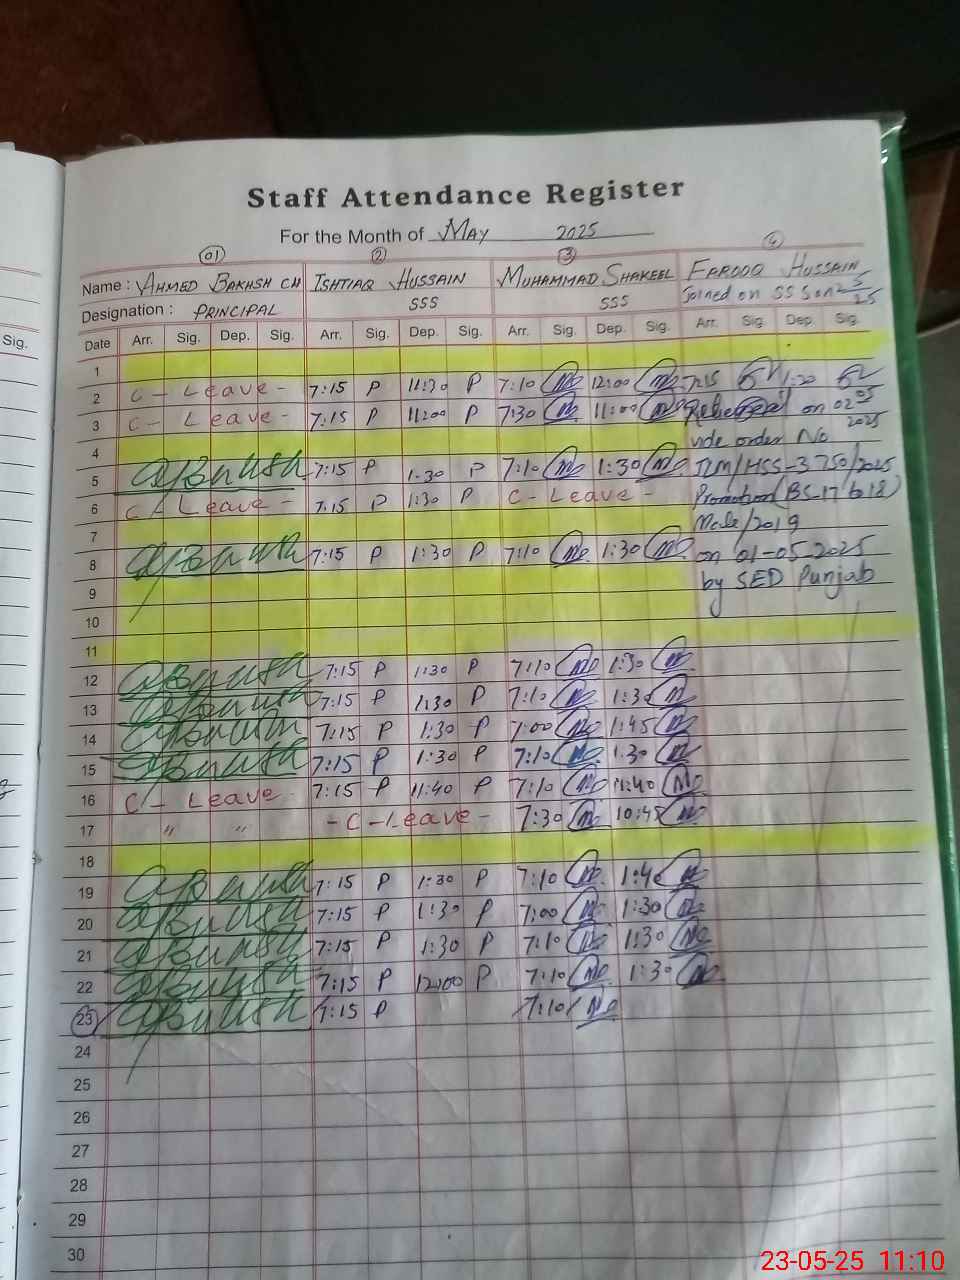 Staff Attendance Register
For the Month of MAY 2025
01 2 3 4
Name : AHMED BAKHSH CH ISHTIAQ HUSSAIN MUHAMMAD SHAKEEL FAROOQ HUSSAIN
Designation : PRINCIPAL SSS SSS Joined on SSS on 2-5-25
Sig. Date Arr. Sig. Dep. Sig. Arr. Sig. Dep. Sig. Arr. Sig. Dep. Sig. Arr. Sig. Dep. Sig.
1
2 C - Leave - 7:15 P 11:30 P 7:10 12:00 7:15
3 C - Leave - 7:15 P 11:00 P 7:30 11:00 on 02-05-2025
4 vide order No
5 7:15 P 1:30 P 7:10 1:30 /HSS-3750/2025
6 C - Leave - 7:15 P 1:30 P C - Leave - Promotion (BS-17 to 18)
7 Male/2019
8 7:15 P 1:30 P 7:10 1:30 on 01-05-2025
9 by SED Punjab
10
11
12 7:15 P 1:30 P 7:10 1:30
13 7:15 P 1:30 P 7:10 1:30
14 7:15 P 1:30 P 7:00 1:45
15 7:15 P 1:30 P 7:10 1:30
16 C - Leave 7:15 P 11:40 P 7:10 11:40
17 " " - C - Leave - 7:30 10:45
18
19 7:15 P 1:30 P 7:10 1:40
20 7:15 P 1:30 P 7:00 1:30
21 7:15 P 1:30 P 7:10 1:30
22 7:15 P 12:00 P 7:10 1:30
23 7:15 P 7:10
24
25
26
27
28
29
30
23-05-25 11:10